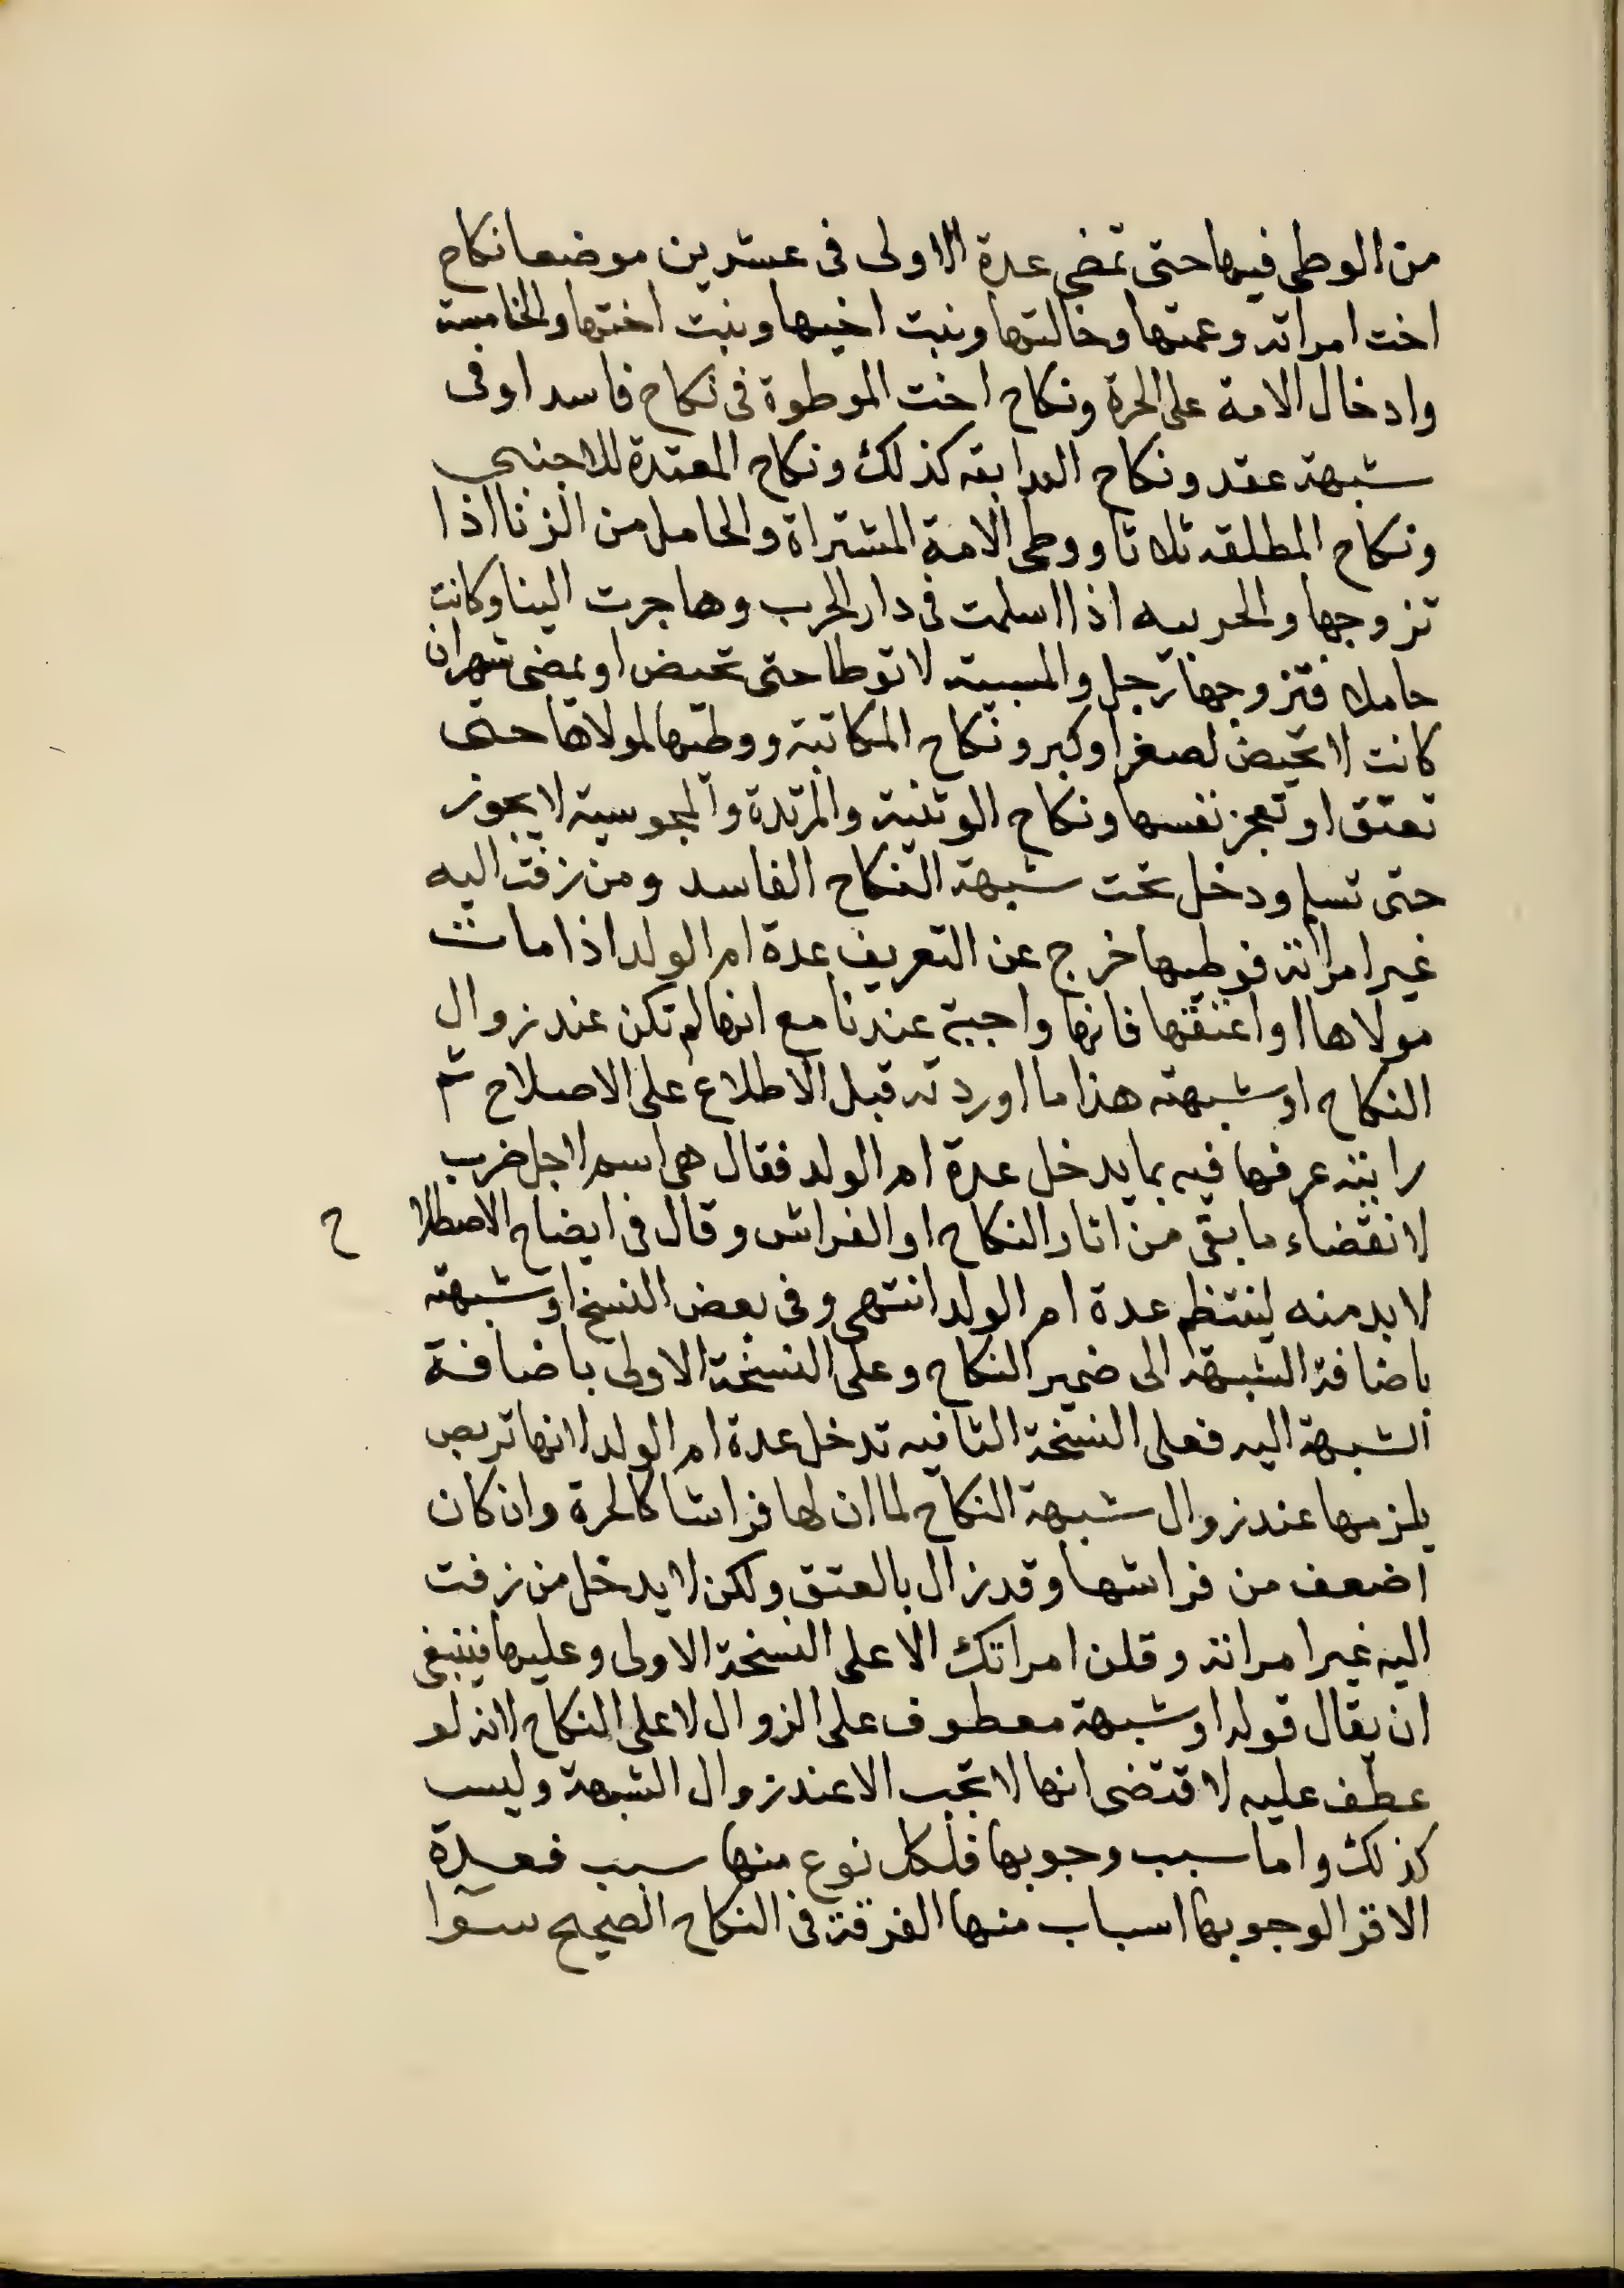 من الوطى فيها حتى تمضى عدة الاولى فى عشرين موضعا نكاح
اخت امراته وعمتها وخالتها وبنت اخيها وبنت اختها والخامسة
وادخال الامة على الحرة ونكاح اخت الموطوة فى نكاح فاسد او فى
شبهة عقد ونكاح الرابعة كذلك ونكاح المعتدة للاجنبى
ونكاح المطلقه ثلاثا ووطى الامة المشتراة والحامل من الزنا اذا
تزوجها والحربيه اذا اسلمت فى دار الحرب وهاجرت الينا وكانت
حاملا فتزوجها رجل والمسبية لا توطا حتى تحيض او يمضى شهر ان
كانت لا تحيض لصغر او كبر ونكاح المكاتبة ووطئها لمولاها حتى
تعتق او تعجز نفسها ونكاح الوثنية والمرتدة والمجوسية لا يجوز
حتى تسلم ودخل تحت شبهة النكاح الفاسد ومن زفت اليه
غير امراته فوطيها خرج عن التعريف عدة ام الولد اذا مات
مولاها او اعتقها فانها واجبة عندنا مع انها لم تكن عند زوال
النكاح او شبهته هذا ما اوردته قبل الاطلاع على الاصلاح ثم
رايته عرفها فيه بما يدخل عدة ام الولد فقال هى اسم لاجل ضرب
لانقضاء ما بقى من اثار النكاح او الفراش وقال فى ايضاح الاصطلاح
لابد منه لينتظم عدة ام الولد انتهى وفى بعض النسخ او شبهته
باضافة الشبهة الى ضمير النكاح وعلى النسخة الاولى باضافة
الشبهة اليه فعلى النسخة الثانيه تدخل عدة ام الولد لانها تربص
يلزمها عند زوال شبهة النكاح لما ان لها فراشا كالحرة وان كان
اضعف من فراشها وقد زال بالعتق ولكن لا يدخل من زفت
اليه غير امراته وقلن امراتك الا على النسخة الاولى وعليها فينبغى
ان يقال قوله او شبهة معطوف على الزوال لا على النكاح لانه لو
عطف عليه لاقتضى انها لا تجب الا عند زوال الشبهة وليس
كذلك واما سبب وجوبها فلكل نوع منها سبب فعدة
الاقرا لوجوبها اسباب منها الفرقة فى النكاح الصحيح سوا